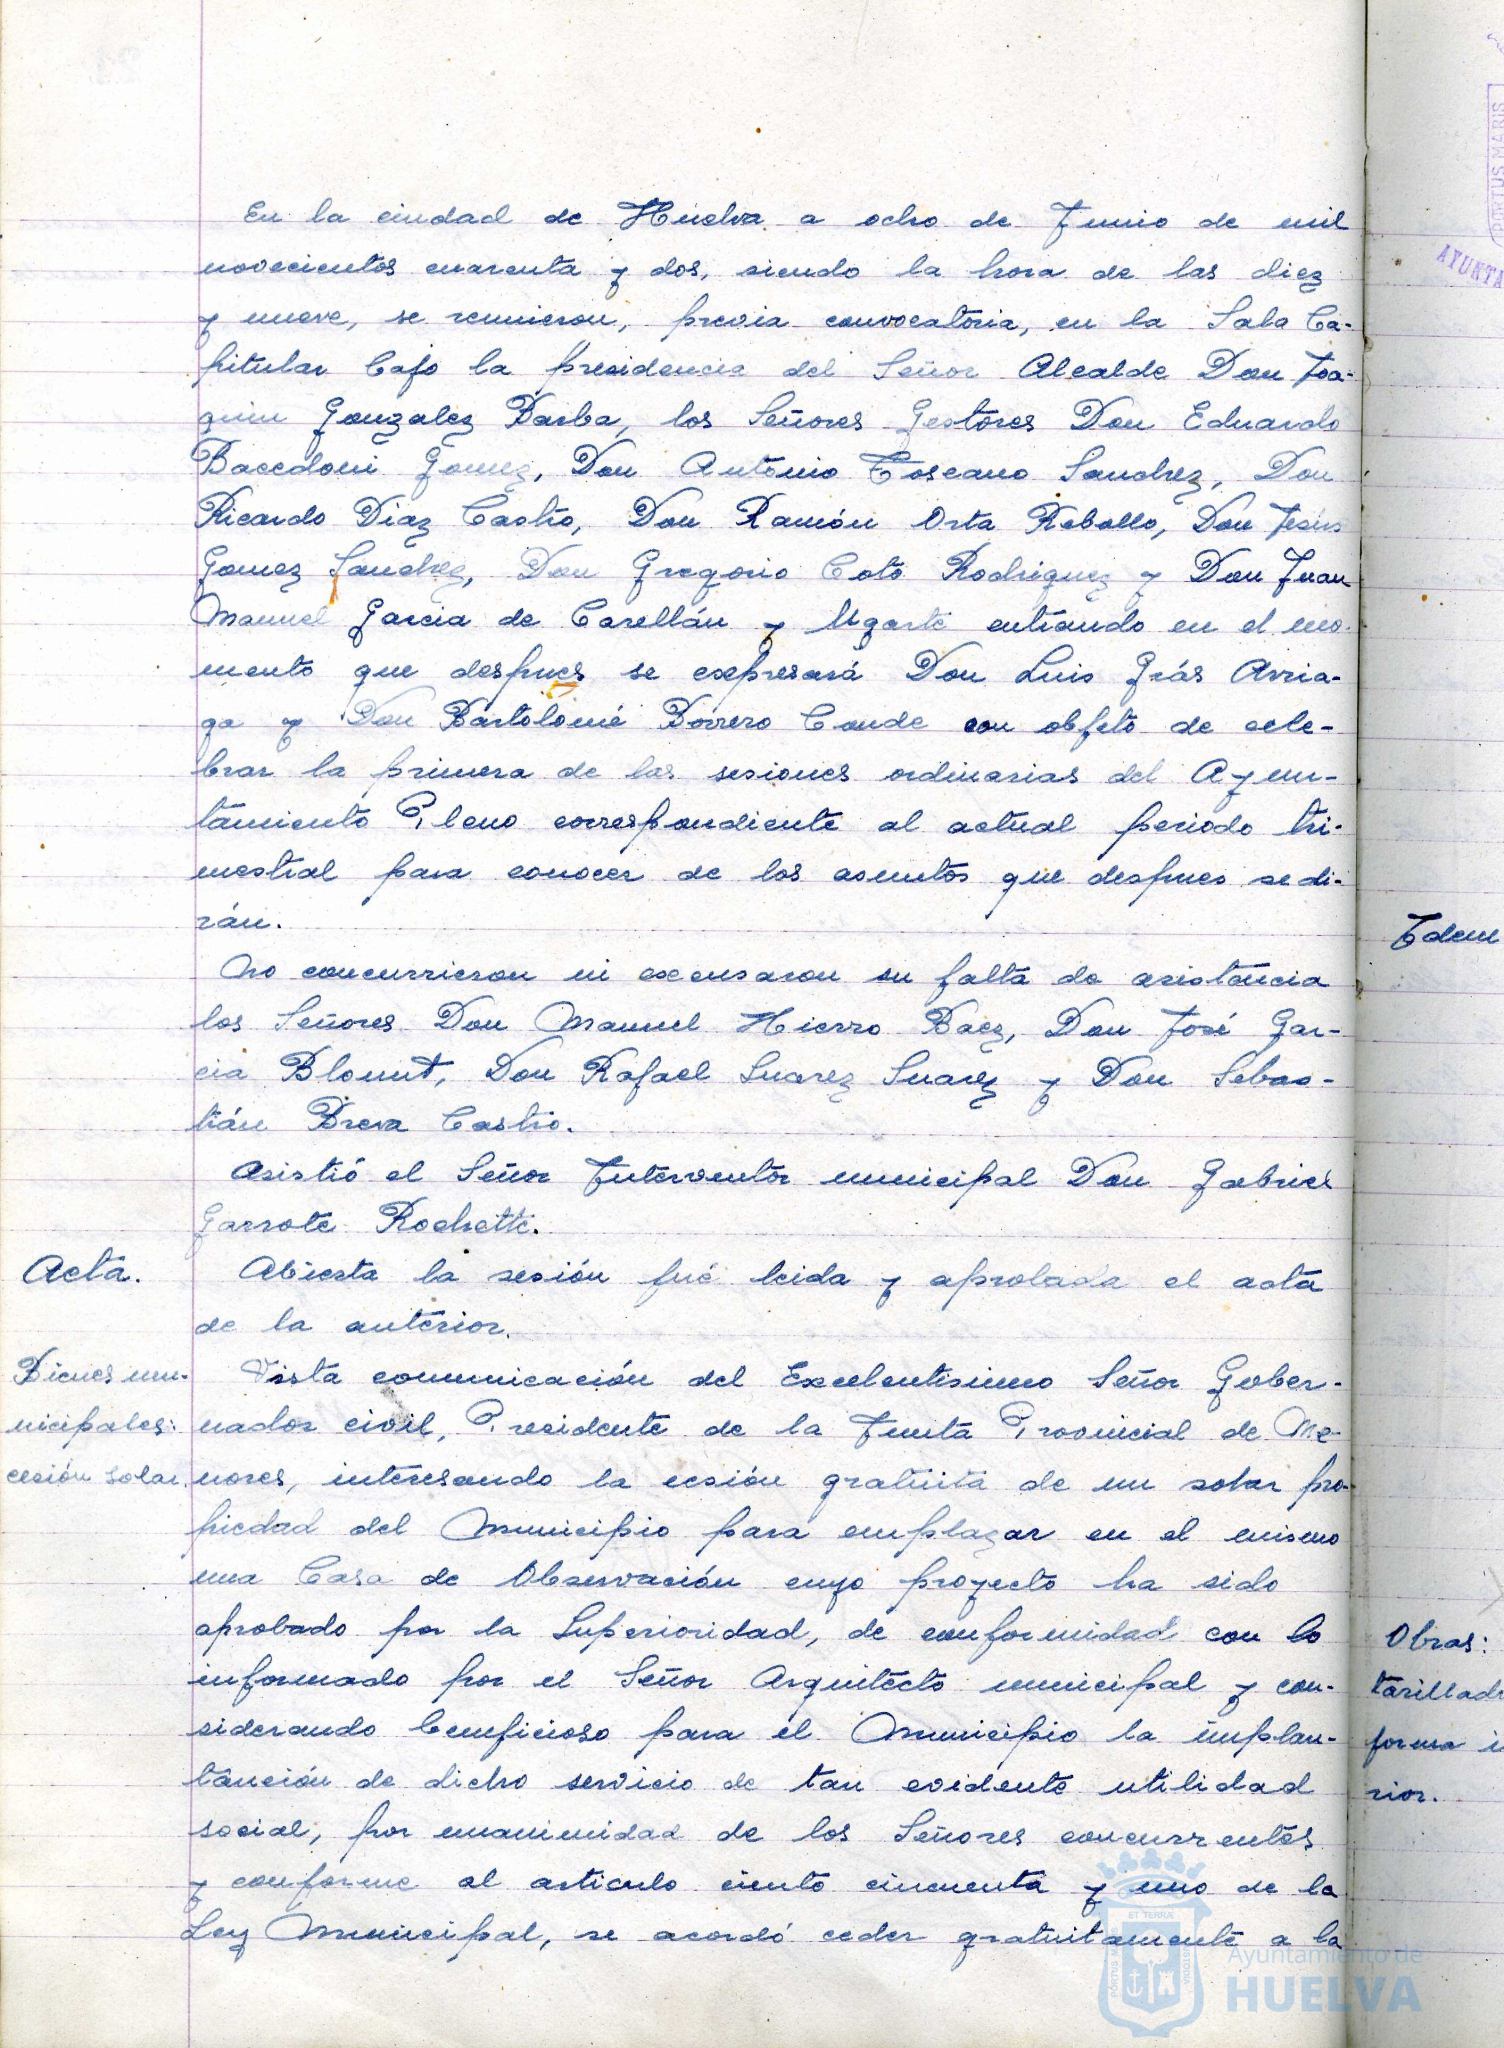 En la ciudad de Huelva a ocho de Junio de mil
novecientos cuarenta y dos, siendo la hora de las diez
y nueve, se reunieron, previa convocatoria, en la Sala Ca-
pitular bajo la presidencia del Señor Alcalde Don Joa-
quin Gonzalez Barba, los Señores Gestores Don Eduardo
Bacedoni Gomez, Don Antonio Toscano Sanchez, Don
Ricardo Diaz Castro, Don Ramón Orta Rebollo, Don Jesús
Gomez Sanchez, Don Gregorio Coto Rodriguez y Don Juan
Manuel Garcia de Carellán y Ugarte entrando en el mo-
mento que despues se expresará Don Luis Grás Arria-
ga y Don Bartolomé Borrero Conde con objeto de cele-
brar la primera de las sesiones ordinarias del Ayun-
tamiento Pleno correspondiente al actual periodo tri-
mestral para conocer de los asuntos que despues se di-
rán.
No concurrieron ni excusaron su falta de asistencia
los Señores Don Manuel Hierro Baez, Don José Gar-
cia Blount, Don Rafael Suarez Suarez y Don Sebas-
tián Breva Castro.
Asistió el Señor Interventor municipal Don Gabriel
Garrote Rochette.
Acta.
Abierta la sesión fué leida y aprobada el acta
de la anterior.
Bienes mu-
nicipales:
cesión solar.
Vista comunicación del Excelentisimo Señor Gober-
nador civil, Presidente de la Junta Provincial de Me-
nores, interesando la cesión gratuita de un solar pro-
piedad del Municipio para emplazar en el mismo
una Casa de Observación cuyo proyecto ha sido
aprobado por la Superioridad, de conformidad con lo
informado por el Señor Arquitecto municipal y con-
siderando beneficioso para el Municipio la implan-
tanción de dicho servicio de tan evidente utilidad
social, por unanimidad de los Señores concurrentes
y conforme al articulo ciento cincuenta y uno de la
Ley Municipal, se acordó ceder gratuitamente a la
PORTUS MARIS
AYUNTA
Idem
Obras:
forma i
rior.
PORTUS MARIS
ET TERRÆ
CUSTODIA
Ayuntamiento de
HUELVA